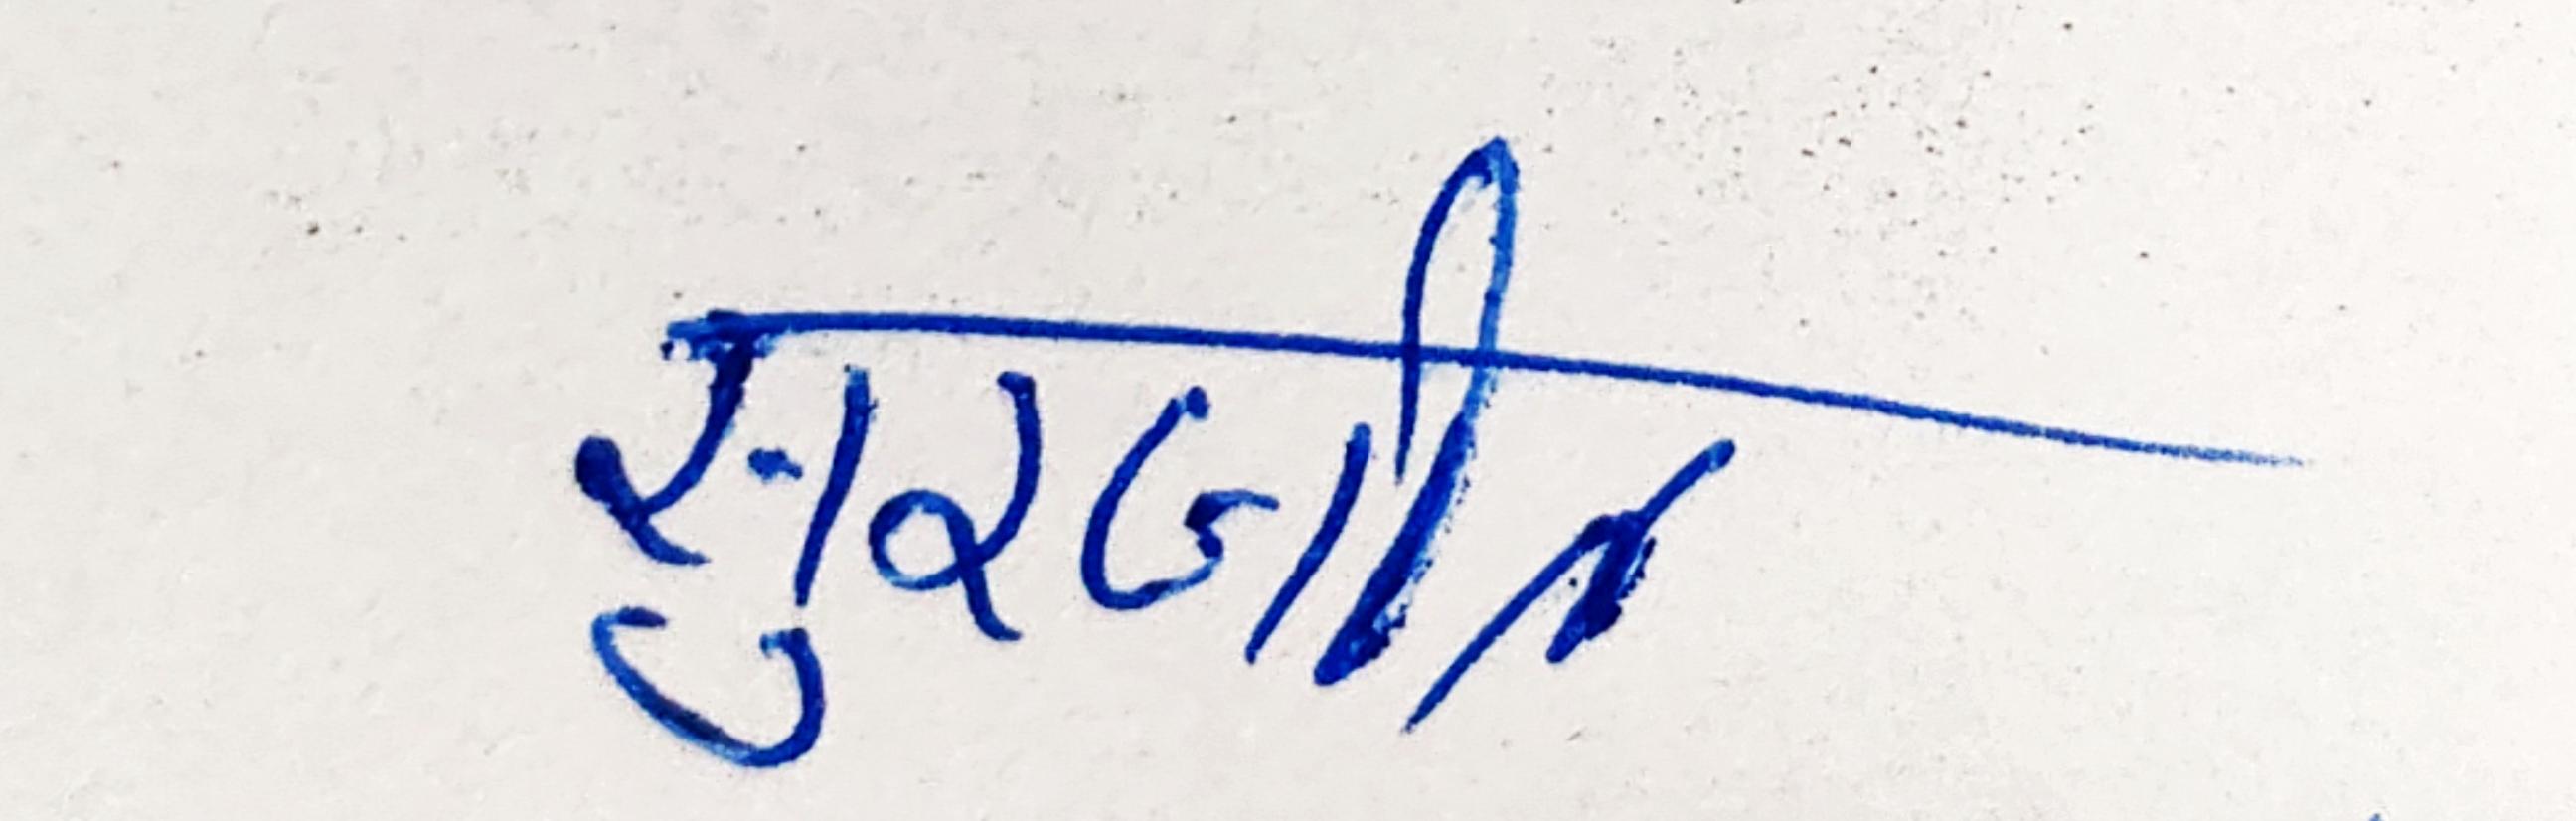 सुरजीत